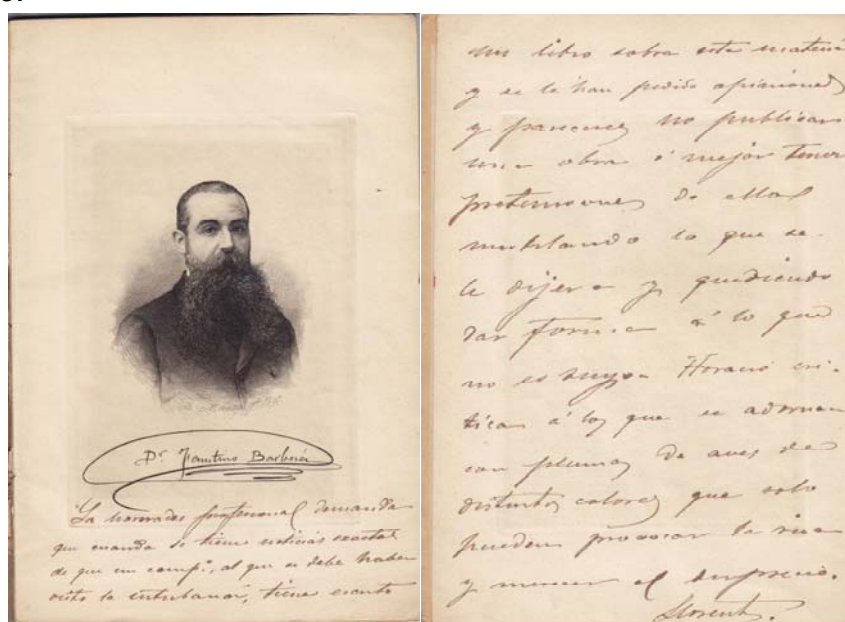 Dr. Faustino Barberá
La honradez profesional demanda
que cuando se tiene noticias exactas
de que un compº, al que se debe haber
visto la intubación, tiene escrito
un libro sobre esta materia
y se le han pedido opiniones
y pareceres no publicar
una obra ó mejor tener
pretensiones de ellas
mutilando lo que se
le dijera y queriendo
dar forma á lo que
no es suyo. Horacio cri-
tica á los que se adornan
con plumas de aves de
distintos colores que solo
pueden provocar la risa
y merecer el desprecio.
Llorente.